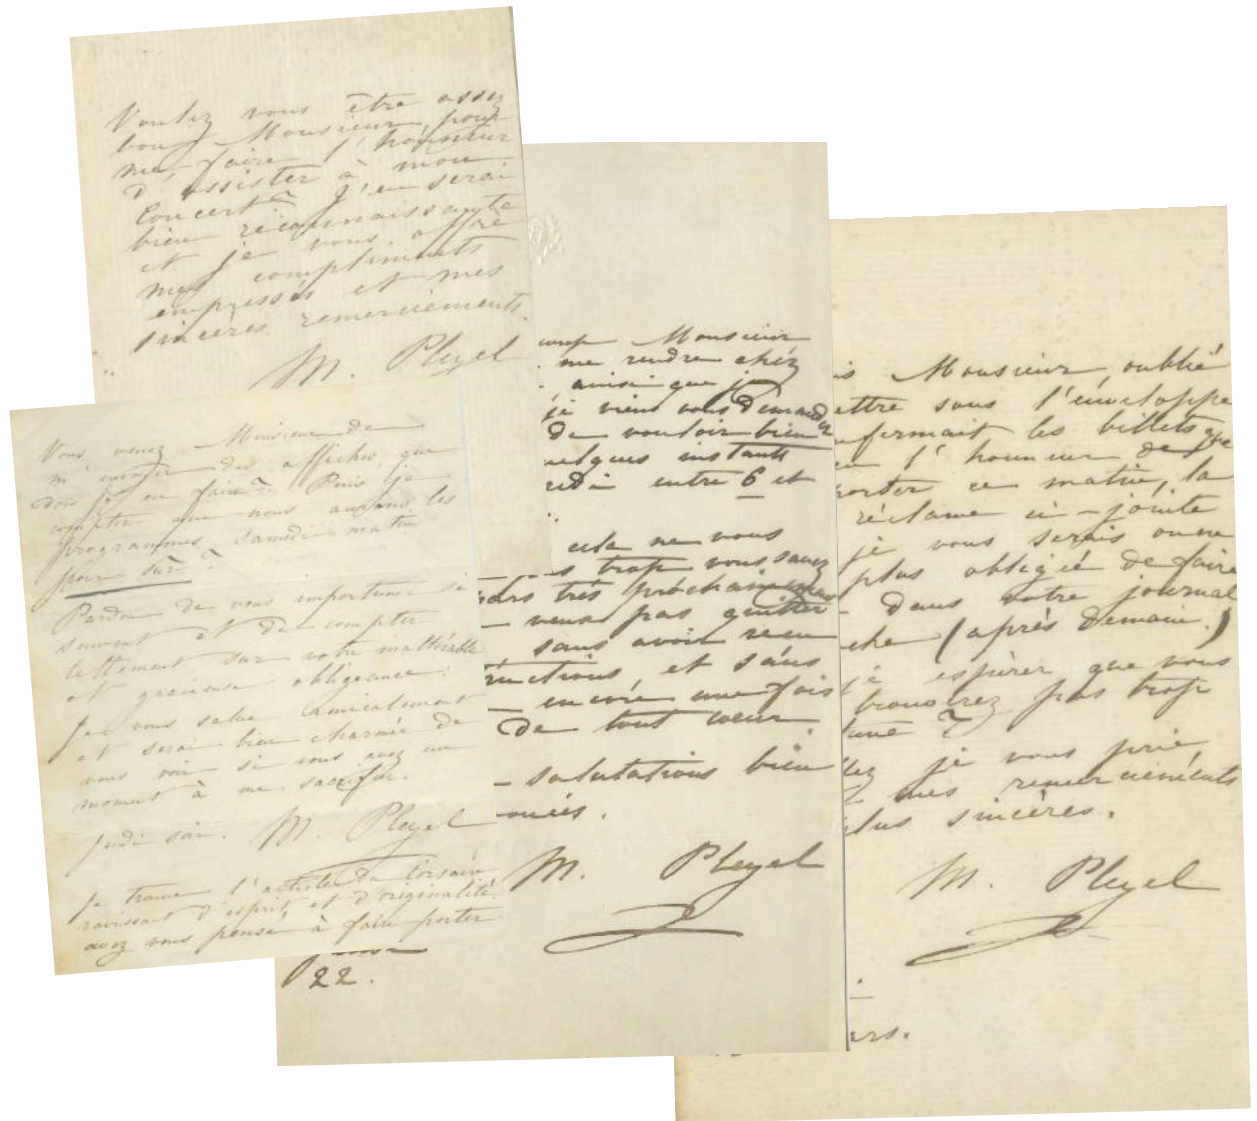 Voulez vous être assez
bon, Monsieur, pour
me faire l'honneur
d'assister à mon
Concert ? J'en serai
bien réconnaissante
et je vous offre
mes compliments
empressés et mes
sincères remerciements.
M. Pleyel
Vous venez Monsieur de
m'envoyer des affiches, que
dois je en faire ? Puis je
compter que nous aurons les
programmes samedi matin
pour sûr ?
Pardon de vous importuner si
souvent et de compter
tellement sur votre inaltérable
et gracieuse obligeance.
Je vous salue amicalement
et serai bien charmée de
vous voir si vous avez un
moment à me sacrifier.
Jeudi soir. M. Pleyel
Je trouve l'article du Corsaire
ravissant d'esprit et d'originalité,
avez vous pensé à faire porter
Monsieur
me rendre chéz
ainsi que je
je viens vous demander
de vouloir bien
quelques instants
entre 6 et
cela ne vous
trop vous savez
pars très prochainement
veux pas quitter
sans avoir reçu
et sans
encore une fois
de tout coeur
salutations bien
M. Pleyel
22.
Monsieur, oublié
mettre sous l'énveloppe
renfermait les billets que
l'honneur de
porter ce matin, la
réclame ci-jointe
je vous serais on ne
plus obligée de faire
dans votre journal
(après demain.)
je espérer que vous
trouverez pas trop
?
je vous prie
mes remerciéments
plus sincères.
M. Pleyel